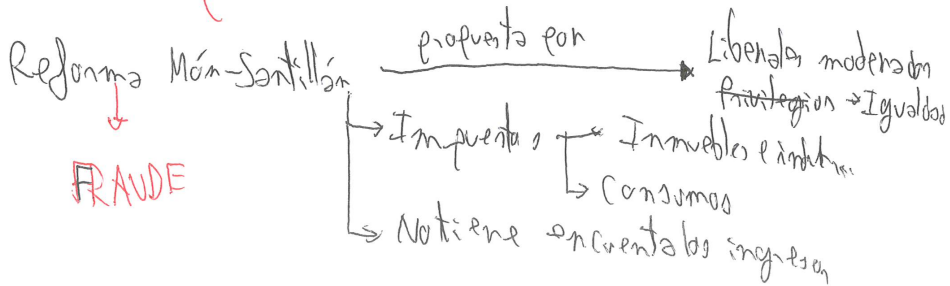 Reforma Món-Santillán
propuesta por
Liberales moderados
Privilegios → Igualdad
FRAUDE
Impuestos
Inmuebles e indus...
Consumos
No tiene en cuenta los ingresos